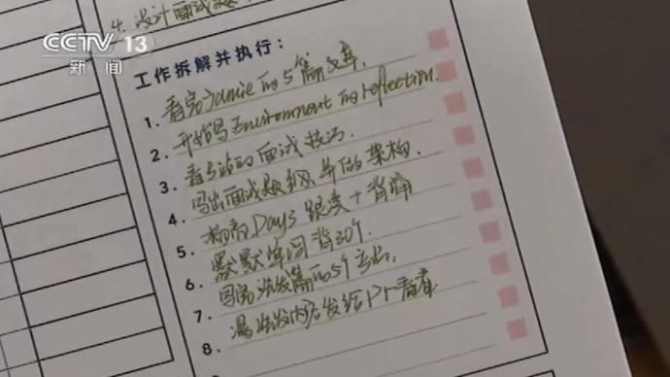 CCTV 13
新闻
4. 设计面试题
工作拆解并执行:
1. 看完Jamie的5篇文章.
2. 开始写Environment的reflection.
3. 看5站的面试技巧.
4. 写出面试题纲并做架构.
5. Day3 跟读+背诵
6. 默默单词背30个.
7. 写完的5个
8. 内容发给Pr看看